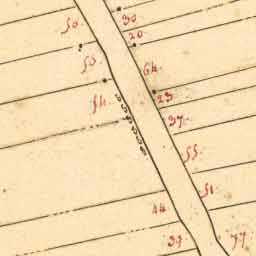 50.
30
20
55.
64.
54.
23
37.
55
51
44
39.
77